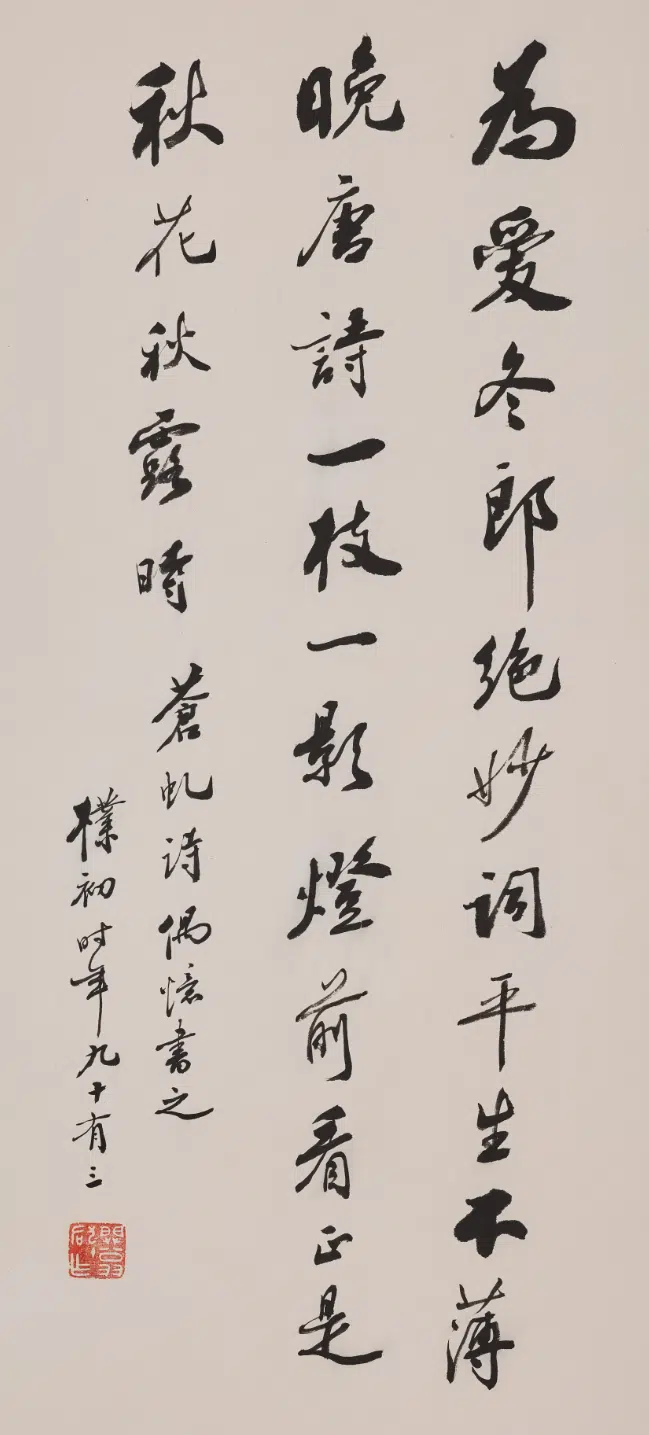 為愛冬郎絕妙詞平生不薄
晚唐詩一枝一影燈前看正是
秋花秋露時 蒼虬詩偶憶書之
樸初时年九十有三